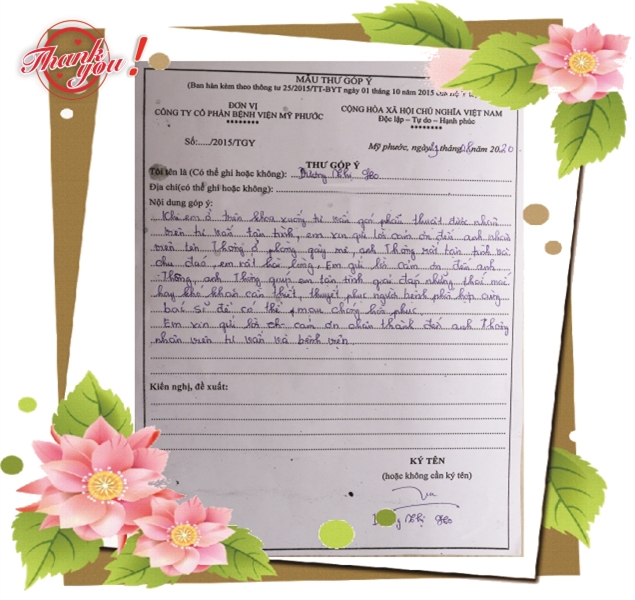 Thank you!
MẪU THƯ GÓP Ý
(Ban hàn kèm theo thông tư 25/2015/TT-BYT ngày 01 tháng 10 năm 2015 của Bộ Y
ĐƠN VỊ
CÔNG TY CỔ PHẦN BỆNH VIỆN MỸ PHƯỚC
********
CỘNG HÒA XÃ HỘI CHỦ NGHĨA VIỆT NAM
Độc lập – Tự do – Hạnh phúc
********
Số:...../2015/TGY
Mỹ phước, ngày tháng 08 năm 2020
THƯ GÓP Ý
Tôi tên là (Có thể ghi hoặc không): Dương Thị
Địa chỉ(có thể ghi hoặc không):
Nội dung góp ý:
Khi em ở trên khoa xuống tư vấn gói phẫu thuật được nhân
viên tư vấn tận tình, em xin gửi lời cảm ơn đến anh nhân
viên tên Thông ở phòng gây mê, anh Thông rất tận tình và
chu đáo, em rất hài lòng. Em gửi lời cảm ơn đến anh
Thông, anh Thông giúp em tận tình giải đáp những thắc mắc
hay khó khăn cần thiết, thuyết phục người bệnh phối hợp cùng
bác sĩ để có thể mau chóng hồi phục.
Em xin gửi lời cảm ơn chân thành đến anh Thông
nhân viên tư vấn và bệnh viện.
Kiến nghị, đề xuất:
KÝ TÊN
(hoặc không cần ký tên)
Thị